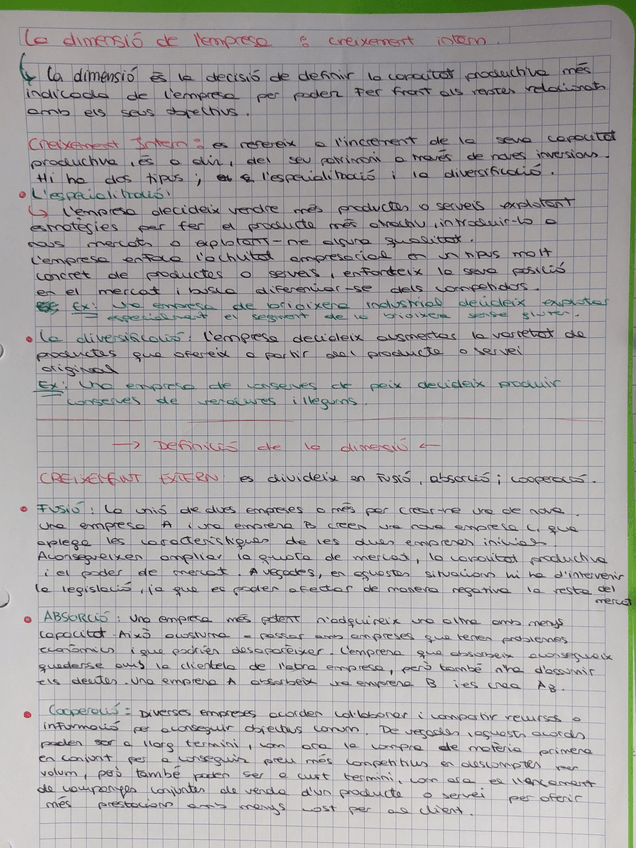 La dimensió de l'empresa : creixement intern.
La dimensió és la decisió de definir la capacitat productiva més
indicada de l'empresa per poder fer front als reptes relacionats
amb els seus objectius.
Creixement Intern: es refereix a l'increment de la seva capacitat
productiva, és a dir, del seu patrimoni a través de noves inversions.
Hi ha dos tipus; l'especialització i la diversificació.
L'especialització:
L'empresa decideix vendre més productes o serveis explotant
estratègies per fer el producte més atractiu, introduir-lo a
nous mercats o explotant-ne alguna qualitat.
L'empresa enfoca l'activitat empresarial en un tipus molt
concret de productes o serveis, enforteix la seva posició
en el mercat i busca diferenciar-se dels competidors.
Ex: Una empresa de brioixeria industrial decideix explotar
especialment el segment de la brioixeria sense gluten.
La diversificació: L'empresa decideix augmentar la varietat de
productes que ofereix a partir del producte o servei
original
Ex: Una empresa de conserves de peix decideix produir
conserves de verdures i llegums.
→ Definició de la dimesió ←
CREIXEMENT EXTERN: es divideix en Fusió, absorció i cooperació.
FUSIÓ: La unió de dues empreses o més per crear-ne una de nova.
Una empresa A i una empresa B creen una nova empresa C, que
aplega les característiques de les dues empreses inicials.
Aconsegueixen ampliar la quota de mercat, la capacitat productiva
i el poder de mercat. A vegades, en aquestes situacions hi ha d'intervenir
la legislació, ja que es poden afectar de manera negativa la resta del
mercat
ABSORCIÓ: Una empresa més potent n'adquireix una altra amb menys
capacitat. Això acostuma a passar amb empreses que tenen problemes
econòmics i que podrien desaparèixer. L'empresa que absorbeix aconsegueix
quedarse amb la clientela de l'altra empresa, però també n'ha d'assumir
els deutes. Una empresa A absorbeix una empresa B i es crea AB.
Cooperació: Diverses empreses acorden col·laborar i compartir recursos o
informació per aconseguir objectius comuns. De vegades, aquests acords
poden ser a llarg termini, com ara la compra de matèria primera
en conjunt per aconseguir preus més competitius en descomptes per
volum, però també poden ser a curt termini, com ara el llançament
de campanyes conjuntes de venda d'un producte o servei per oferir
més prestacions amb menys cost per al client.